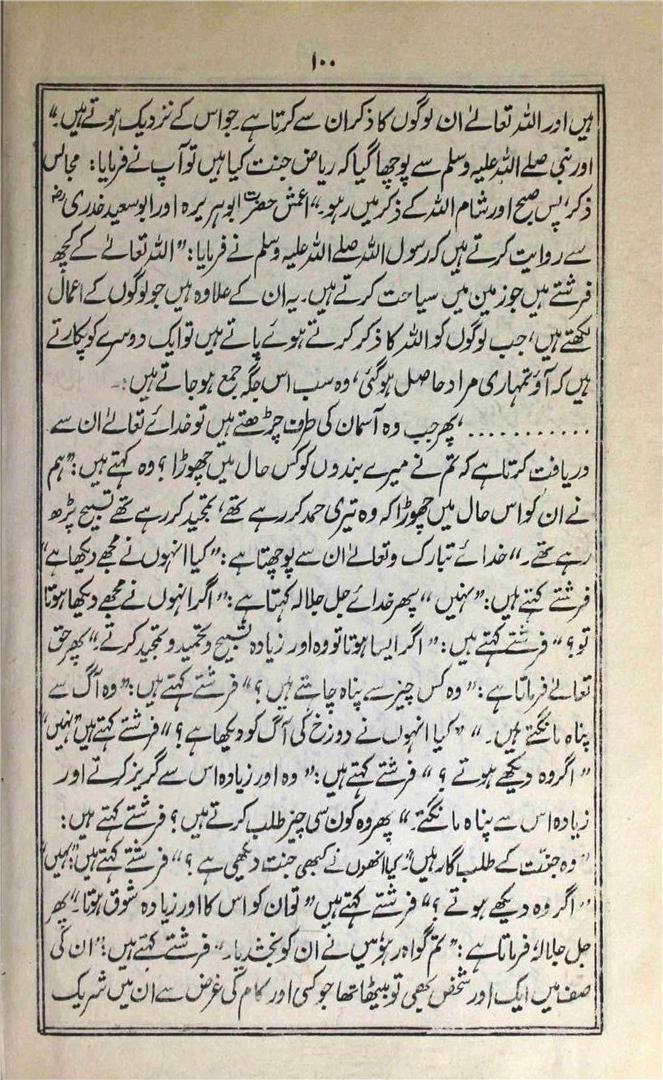 ۱۰۰
ہیں اور اللہ تعالےٰ ان لوگوں کا ذکر ان سے کرتا ہے۔ جو اس کے نزدیک ہوتے ہیں۔“
اور نبی صلے اللہ علیہ وسلم سے پوچھا گیا کہ ریاض جنت کیا ہیں تو آپ نے فرمایا: مجالس
ذکر‘ پس صبح اور شام اللہ کے ذکر میں رہو۔“ اعمش حضرت ابو ہریرہ اور ابو سعید خدری رض
سے روایت کرتے ہیں کہ رسول اللہ صلے اللہ علیہ وسلم نے فرمایا: ”اللہ تعالےٰ کے کچھ
فرشتے ہیں جو زمین میں سیاحت کرتے ہیں۔ یہ ان کے علاوہ ہیں جو لوگوں کے اعمال
لکھتے ہیں‘ جب لوگوں کو اللہ کا ذکر کرتے ہوئے پاتے ہیں تو ایک دوسرے کو پکارتے
ہیں کہ آؤ تمہاری مراد حاصل ہو گئی‘ وہ سب اس جگہ جمع ہو جاتے ہیں:۔
........... ‘ پھر جب وہ آسمان کی طرف چڑھتے ہیں تو خدائے تعالےٰ ان سے
دریافت کرتا ہے کہ تم نے میرے بندوں کو کس حال میں چھوڑا؟ وہ کہتے ہیں: ”ہم
نے ان کو اس حال میں چھوڑا کہ وہ تیری حمد کر رہے تھے‘ تمجید کر رہے تھے تسبیح پڑھ
رہے تھے۔“ خدائے تبارک وتعالےٰ ان سے پوچھتا ہے: ”کیا انہوں نے مجھے دیکھا ہے“
فرشتے کہتے ہیں: ”نہیں“ پھر خدائے جل جلالہ کہتا ہے: ”اگر انہوں نے مجھے دیکھا ہوتا
تو؟“ فرشتے کہتے ہیں: ”اگر ایسا ہوتا تو وہ اور زیادہ تسبیح و تحمید و تمجید کرتے۔“ پھر حق
تعالےٰ فرماتا ہے: ”وہ کس چیز سے پناہ چاہتے ہیں؟“ فرشتے کہتے ہیں: ”وہ آگ سے
پناہ مانگتے ہیں۔“ ”کیا انہوں نے دوزخ کی آگ کو دیکھا ہے؟“ فرشتے کہتے ہیں ”نہیں“
”اگر وہ دیکھے ہوتے؟“ فرشتے کہتے ہیں: ”وہ اور زیادہ اس سے گریز کرتے اور
زیادہ اس سے پناہ مانگتے۔“ پھر وہ کون سی چیز طلب کرتے ہیں؟ فرشتے کہتے ہیں:
”وہ جنت کے طلب گار ہیں“۔ کیا انھوں نے کبھی جنت دیکھی ہے؟“ فرشتے کہتے ہیں: ”نہیں“
”اگر وہ دیکھے ہوتے؟“ فرشتے کہتے ہیں ”تو ان کو اس کا اور زیادہ شوق ہوتا۔“ پھر
جل جلالہٗ فرماتا ہے: ”تم گواہ رہو میں نے ان کو بخش دیا۔“ فرشتے کہتے ہیں: ”ان کی
صف میں ایک اور شخص بھی تو بیٹھا تھا جو کسی اور کام کی غرض سے ان میں شریک